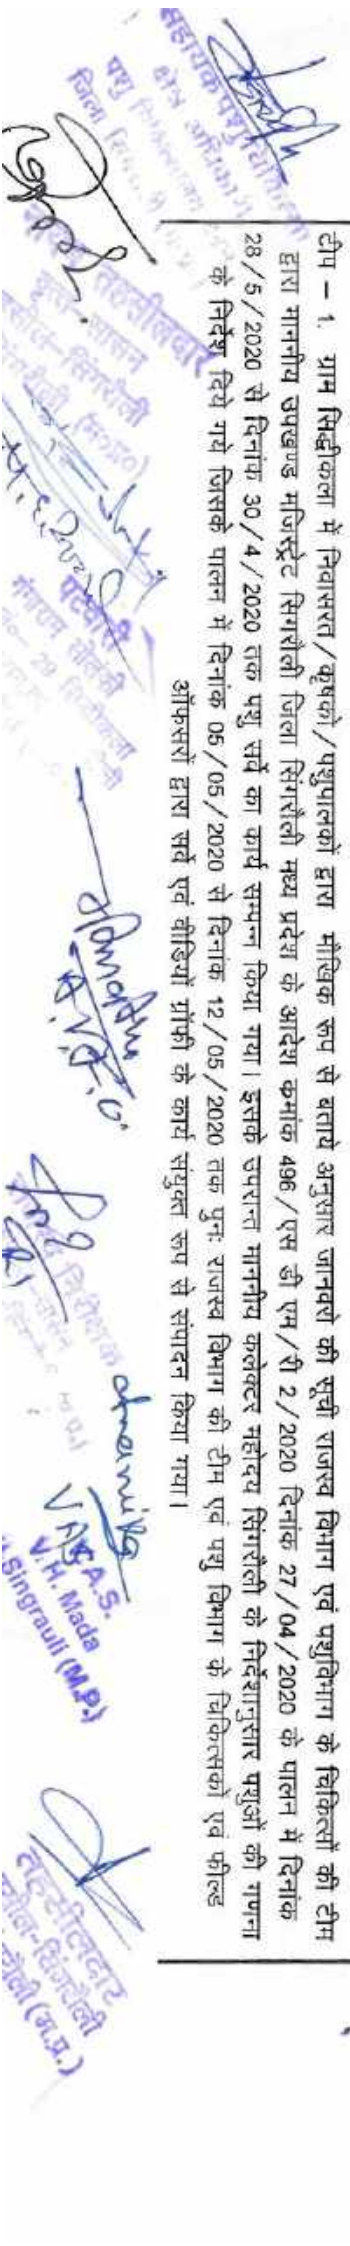 टीप – 1. ग्राम सिद्धीकला में निवासरत/कृषको/पशुपालकों द्वारा मौखिक रूप से बताये अनुसार जानवरो की सूची राजस्व विभाग एवं पशुविभाग के चिकित्सों की टीम
द्वारा माननीय उपखण्ड मजिस्ट्रेट सिंगरौली जिला सिंगरौली मध्य प्रदेश के आदेश कमांक 496/एस डी एम/री 2/2020 दिनांक 27/04/2020 के पालन में दिनांक
28/5/2020 से दिनांक 30/4/2020 तक पशु सर्वे का कार्य सम्पन्न किया गया। इसके उपरान्त माननीय कलेक्टर महोदय सिंगरौली के निर्देशानुसार पशुओं की गणना
के निर्देश दिये गये जिसके पालन में दिनांक 05/05/2020 से दिनांक 12/05/2020 तक पुनः राजस्व विभाग की टीम एवं पशु विभाग के चिकित्सको एवं फील्ड
ऑफसरों द्वारा सर्वे एवं वीडियों ग्रॉफी के कार्य संयुक्त रूप से संपादन किया गया।
सहायक पशु
क्षेत्र अधिकारी
पशु
जिला
तहसीलदार
वृत्त- सासन
सिंगरौली
(म०प्र०)
पटवारी
गंगाराम सोलंकी
29 सिद्धीकला
A.V.F.O.
निरीक्षक
V.A.S.
V.H. Mada
Singrauli (M.P.)
तहसीलदार
सिंगरौली
(म.प्र.)